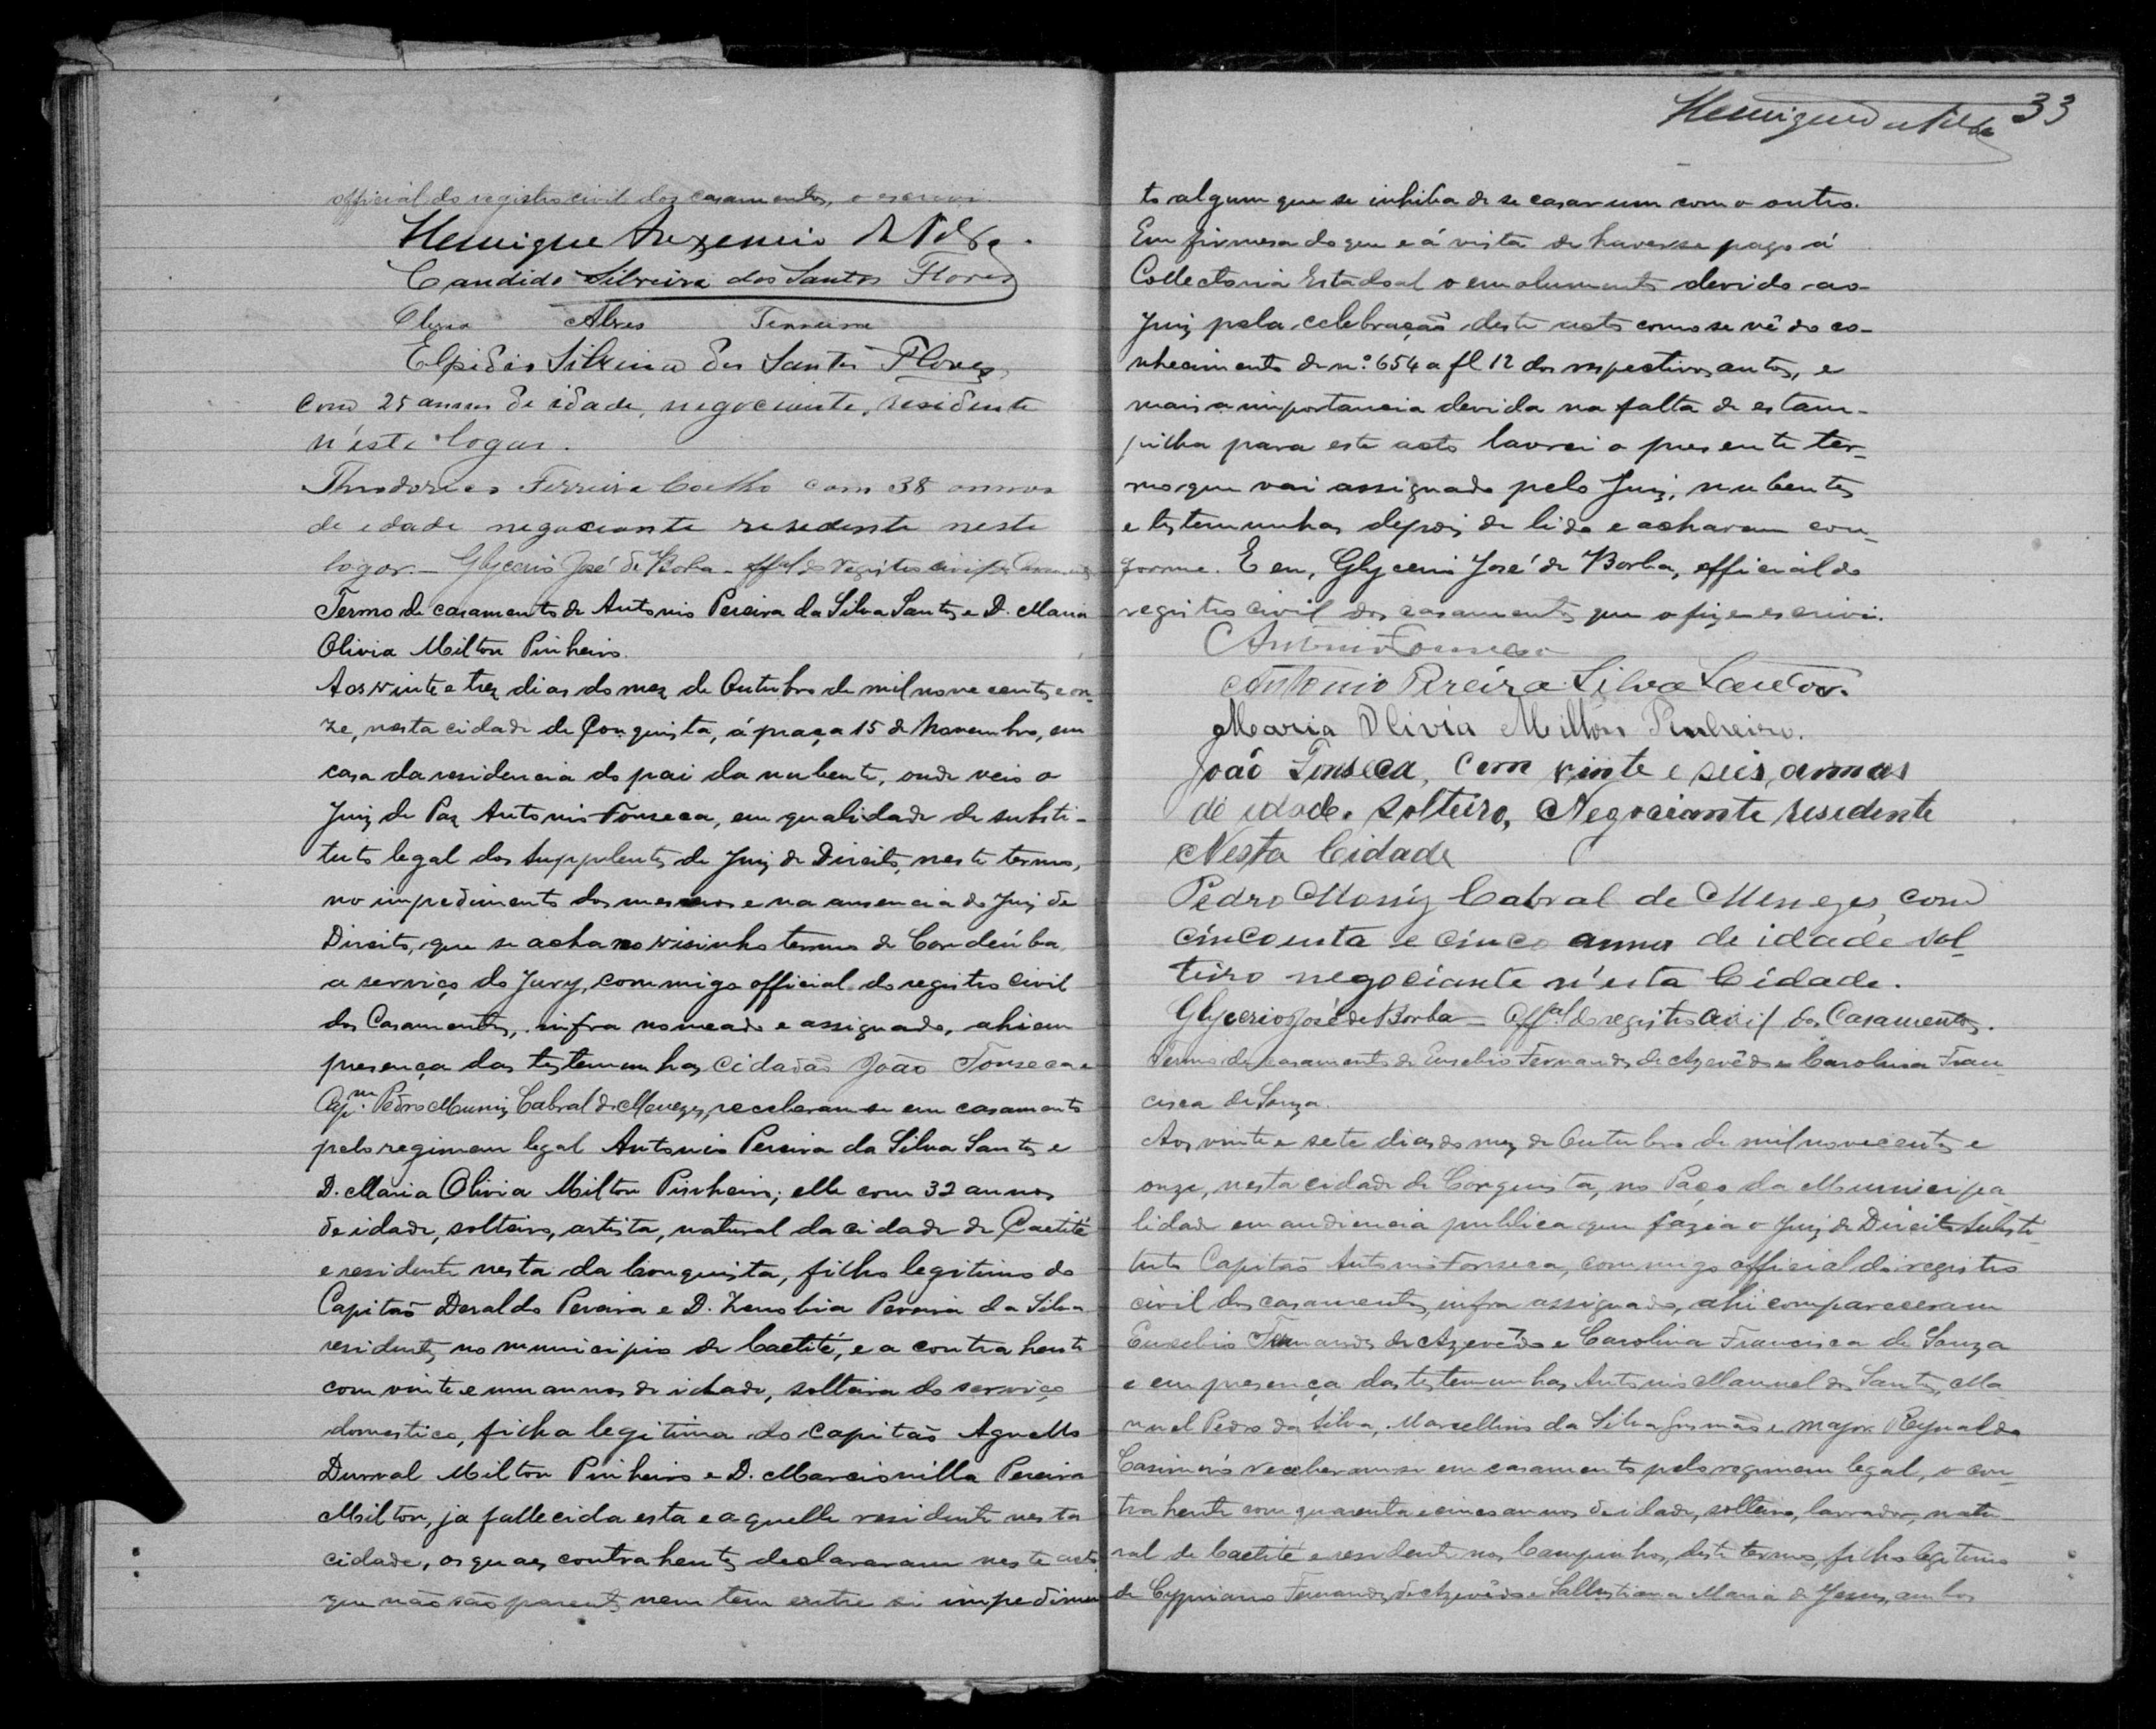 official do registro civil dos casamentos, o escrevi.
Henrique
Candido Silveira dos Santos Flores
Alves Ferreira
Elpidio Silveira dos Santos Flores,
com 25 annos de idade, negociante, residente
n'este logar.
Ferreira Coelho com 38 annos
de edade negociante resedente neste
logar. — Glycerio José de Borba — offal do registro civil de Casamentos
Termo de casamento de Antonio Pereira da Silva Santos e D. Maria
Olivia Milton Pinheiro.
Aos vinte e trez dias do mez de Outubro de mil nove centos e on-
ze, nesta cidade de Conquista, á praça 15 de Novembro, em
casa da residencia do pai da nubente, onde veio o
Juiz de Paz Antonio Fonseca, em qualidade de substi-
tuto legal dos Supplentes de Juiz de Direito, neste termo,
no impedimento dos mesmos e na ausencia do Juiz de
Direito, que se acha no visinho termo de Condeúba,
a serviço do Jury, commigo official do registro civil
dos Casamentos, infra nomeado e assignado, ahi em
presença das testemunhas Cidadão João Fonseca e
Capm. Pedro Muniz Cabral de Menezes, receberam-se em casamento
pelo regimem legal Antonio Pereira da Silva Santos e
D. Maria Olivia Milton Pinheiro; elle com 32 annos
de idade, solteiro, artista, natural da cidade de Caetité
e residente nesta da Conquista, filho legitimo do
Capitão Deraldo Pereira e D. Zenobia Pereira da Silva
residentes no municipio de Caetité, e a contrahente
com vinte e um annos de idade, solteira do serviço
domestico, filha legitima do Capitão Agnello
Durval Milton Pinheiro e D. Marcionilla Pereira
Milton, ja fallecida esta e aquelle residente nesta
cidade, os quaes contrahentes declararam neste acto
que não são parentes nem tem entre si impedimen
33
to algum que se inhiba de se casar um com o outro.
Em firmesa do que e á vista de haver-se pago á
Collectoria Estadoal o emolumento devido ao
Juiz pela celebração deste acto como se vê do co-
nhecimento de n.º 654 a fl 12 dos respectivos autos, e
mais a importancia devida na falta de estam-
pilha para este acto lavrei o presente ter-
mo que vai assignado pelo Juiz, nubentes
e testemunhas depois de lido e acharem con-
forme. E eu, Glycerio José de Borba, official do
registro civil dos casamentos que o fiz e escrivi.
Antonio Fonseca
Antonio Pereira Silva Santos.
Maria Olivia Milton Pinheiro.
João Fonseca, com vinte e seis annos
de idade. solteiro, Negociante residente
Nesta Cidade
Pedro Moniz Cabral de Menezes, com
cincoenta e cinco annos de idade sol-
teiro negociante n'esta Cidade.
Glycerio José de Borba — Offal do registro civil dos Casamentos.
Termo de casamento de Eusebio Fernandes de Azevêdo e Carolina Fran-
cisca de Souza.
Aos vinte e sete dias do mez de Outubro de mil novecentos e
onze, nesta cidade de Conquista, no Paço da Municipa
lidade em audiencia publica que fazia o Juiz de Direito Substi-
tuto Capitão Antonio Fonseca, commigo official do registro
civil dos casamentos, infra assignado, ahi compareceram
Eusebio Fernandes de Azevêdo e Carolina Francisca de Souza
e em presença das testemunhas Antonio Manuel dos Santos, Ma
nuel Pedro da Silva, Marcellino da Silva Gusmão e Major Reynaldo
Casimiro receberam-se em casamento pelo regimem legal, o con-
trahente com quarenta e cinco annos de idade, solteiro, lavrador, natu-
ral de Caetité e residente nos Campinhos, deste termo, filho legitimo
de Cypriano Fernandes de Azevêdo e Sallustiana Maria de Jesus, ambos